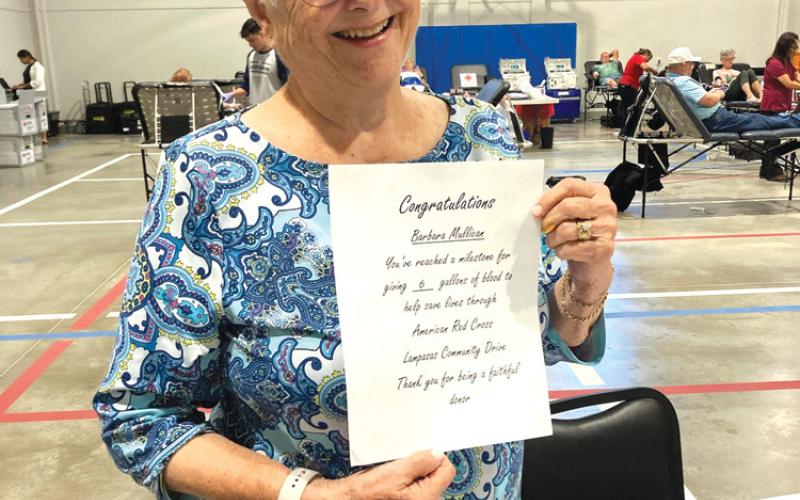 Congratulations
Barbara Mullican
You've reached a milestone for
giving 6 gallons of blood to
help save lives through
American Red Cross
Lampasas Community Drive
Thank you for being a faithful
donor